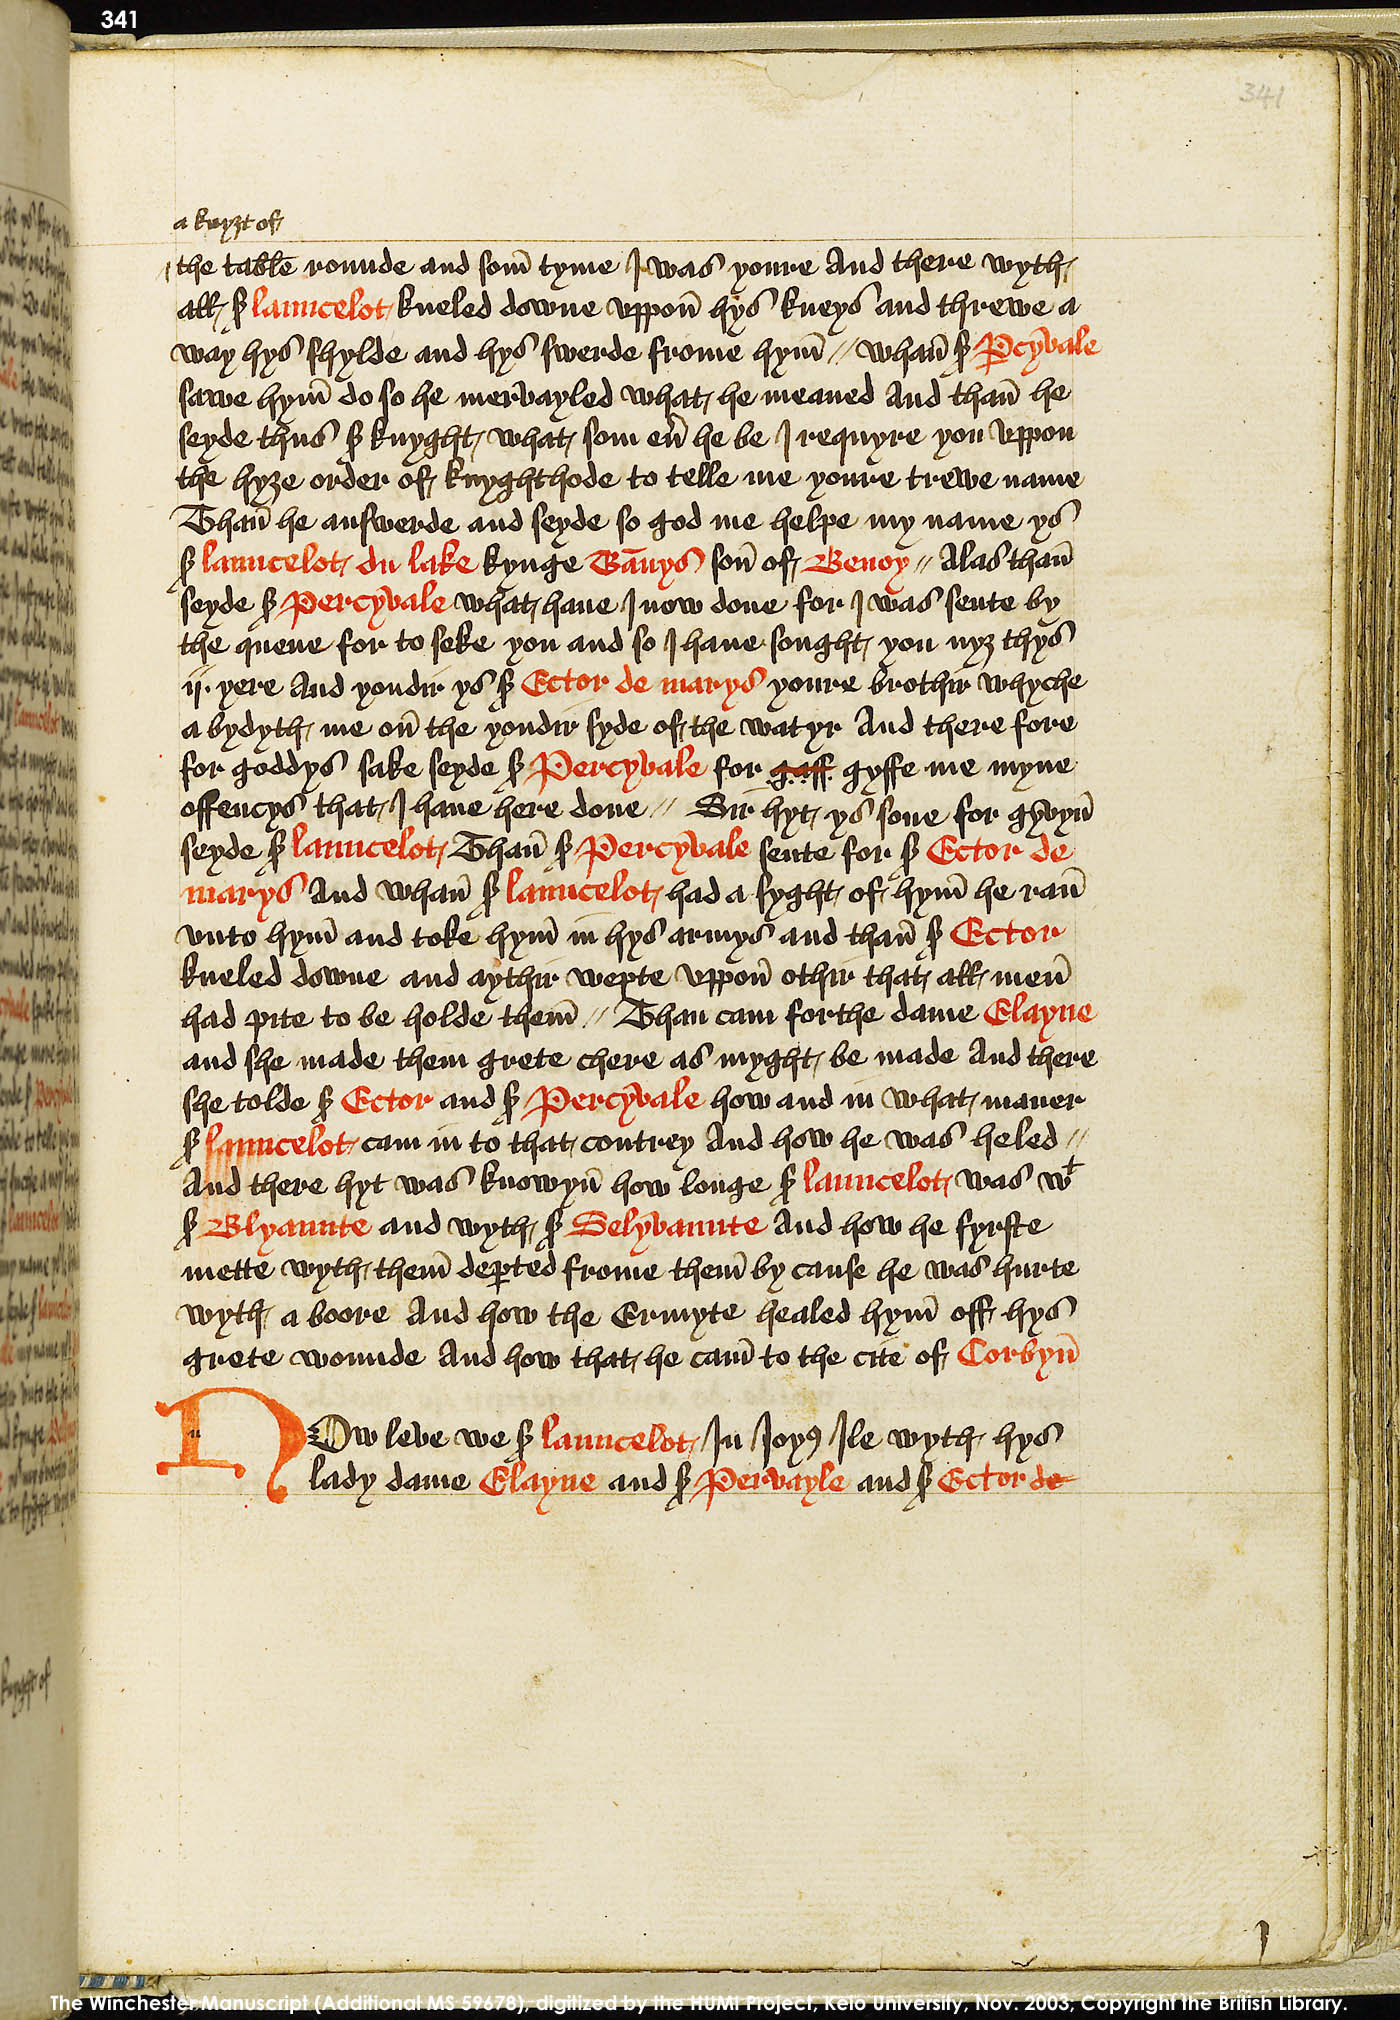 341
341
a knyȝt of
the table rounde and som̄ tyme I was youre And there wyth
all sꝛ launcelot kneled downe vppon̄ hys kneys and threwe a
way hys shylde and hys swerde frome hym̄ // whan̄ sꝛ Pcyvale
sawe hym̄ do so he mervayled what he meaned And than̄ he
seyde thus sꝛ knyght what som eu̅ he be I requyre you vppon
the hyȝe order of knyghthode to telle me youre trewe name
Than̄ he answerde and seyde so god me helpe my name ys
sꝛ launcelot du lake kynge Bānys son̄ of Benoy // Alas than̄
seyde sꝛ Percyvale what haue I now done for I was sente by
the quene for to seke you and so I haue sought you nyȝ thys
ij. yere And yondir ys sꝛ Ector de marys youre brothir whyche
a bydyth me on̄ the yondir syde of the watyr And there fore
for goddys sake seyde sꝛ Percyvale for gaff gyffe me myne
offencys that I haue here done // Sir hyt ys sone for gyvyn̄
seyde sꝛ launcelot Than̄ sꝛ Percyvale sente for sꝛ Ector de
marys And whan̄ sꝛ launcelot had a syght of hym̄ he ran̄
vnto hym̄ and toke hym̄ in hys armys and than̄ sꝛ Ector
kneled downe and aythir wepte vppon̄ othir that all men̄
had pite to be holde them̄ // Than cam forthe dame Elayne
and she made them grete chere as myght be made And there
she tolde sꝛ Ector and sꝛ Percyvale how and in what maner
sꝛ launcelot cam in to that contrey And how he was heled //
And there hyt was knowyn̄ how longe sꝛ launcelot was wᵗ
sꝛ Blyaunte and wyth sꝛ Selyvaunte And how he fyrste
mette wyth them̄ deꝑted frome them̄ by cause he was hurte
wyth a boore And how the Ermyte healed hym̄ off hys
grete wounde And how that he cam̄ to the cite of Corbyn̄
NOw leve we sꝛ launcelot In Joyꝰ Ile wyth hys
lady dame Elayne and sꝛ Pervayle and sꝛ Ector de
The Winchester Manuscript (Additional MS 59678), digitized by the HUMI Project, Keio University, Nov. 2003, Copyright the British Library.